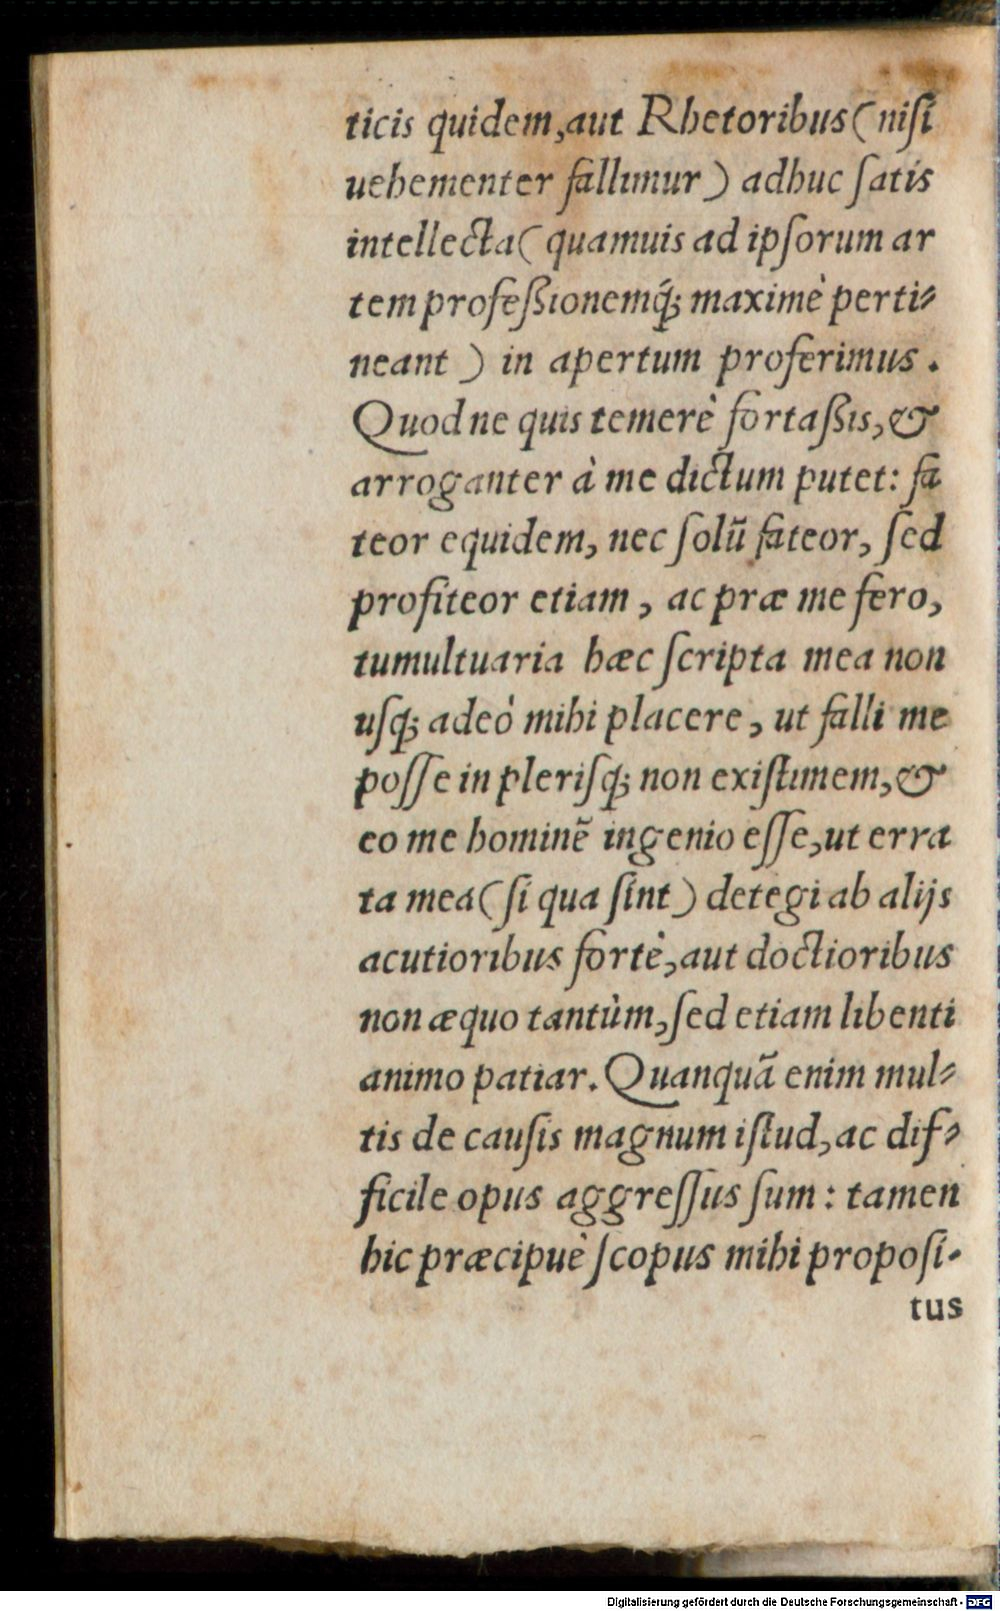 ticis quidem,aut Rhetoribus(niſi
uehementer fallimur) adhuc ſatis
intellecta(quamuis ad ipſorum ar
tem profeßionemq́; maximè perti-
neant) in apertum proferimus.
Quod ne quis temerè fortaßis,&
arroganter à me dictum putet: fa
teor equidem, nec ſolū fateor, ſed
profiteor etiam, ac præ me fero,
tumultuaria hæc ſcripta mea non
uſq; adeò mihi placere, ut falli me
poſſe in pleriſq; non exiſtimem,&
eo me hominē ingenio eſſe,ut erra
ta mea(ſi qua ſint) detegi ab alijs
acutioribus fortè,aut doctioribus
non æquo tantùm,ſed etiam libenti
animo patiar. Quanquā enim mul-
tis de cauſis magnum iſtud,ac dif-
ficile opus aggreſſus ſum: tamen
hic præcipuè ſcopus mihi propoſi-
tus
Digitalisierung gefördert durch die Deutsche Forschungsgemeinschaft - DFG